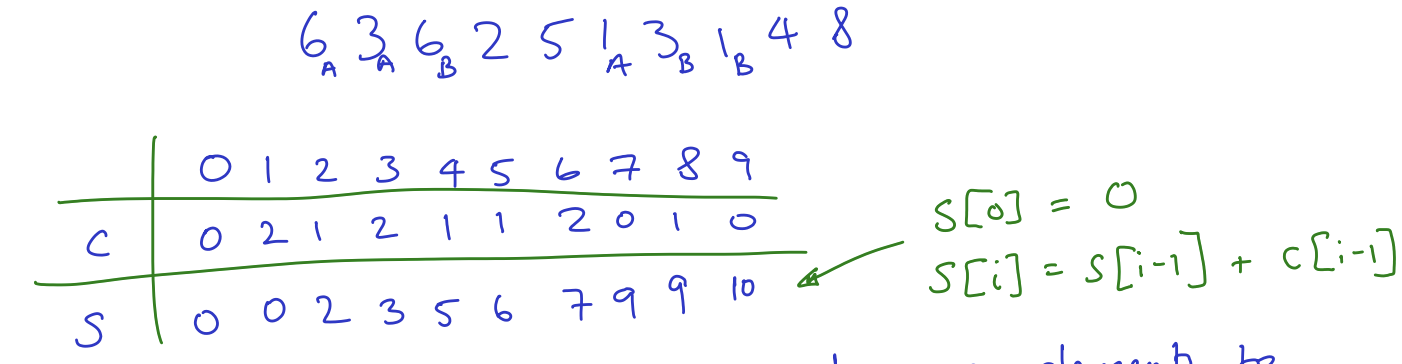 6A 3A 6B 2 5 1A 3B 1B 4 8
0 1 2 3 4 5 6 7 8 9
C 0 2 1 2 1 1 2 0 1 0
S 0 0 2 3 5 6 7 9 9 10
S[0] = 0
S[i] = S[i-1] + C[i-1]
to